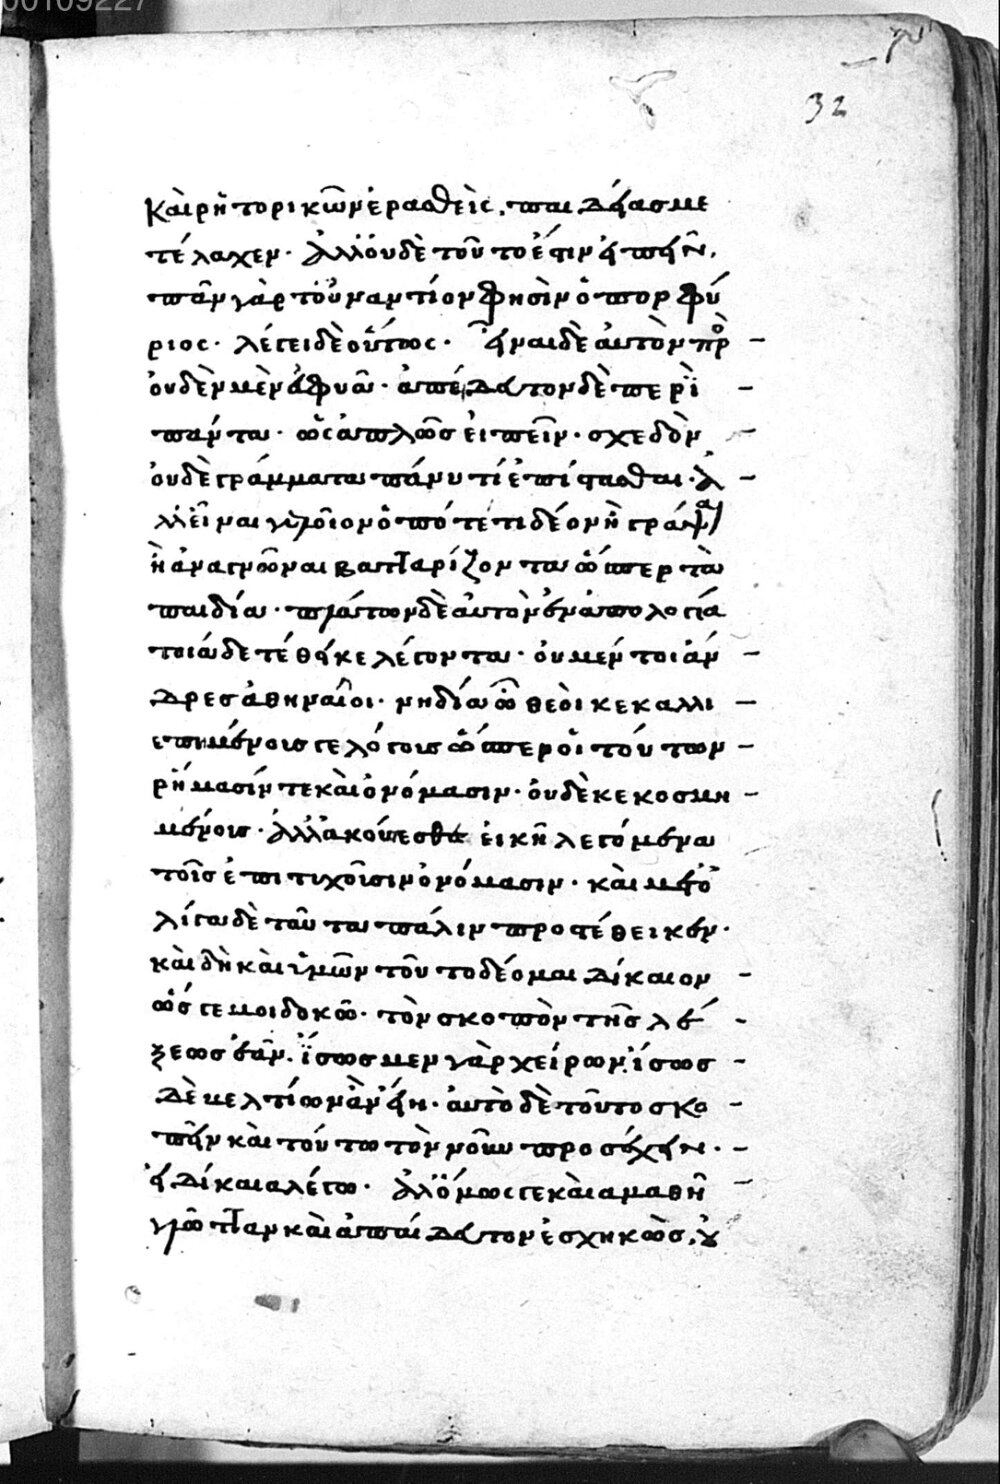 00109227
32
καὶ ῥητορικῶν ἐρασθεὶς, παιδείας με
τέλαχεν. ἀλλ' οὐδὲ τοῦτο ἔστιν εἰπεῖν.
πᾶν γὰρ τοὐναντίον φησὶν ὁ πορφύ
ριος. λέγει δὲ οὕτως. εἶναι δὲ αὐτὸν πρὸ
οὐδὲν μὲν ἀφυᾶ. ἀπαίδευτον δὲ περὶ
πάντα. ὡς ἁπλῶς εἰπεῖν. σχεδὸν
οὐδὲ γράμματα πάνυ τί ἐπίστασθαι. ἀλ
λ' εἶναι γελοῖον ὁπότε τι δέον ἢ γράψαι
ἢ ἀναγνῶναι βατταρίζοντα ὥσπερ τὰ
παιδία. πλάτων δὲ αὐτὸν ἐν ἀπολογία
τοιάδε τέθεικε λέγοντα. οὐ μέντοι ἄν
δρες ἀθηναῖοι. νὴ δία ὦ θεοὶ κεκαλλι
επημένοις γε λόγοις ὥσπερ οἱ τούτων
ῥήμασίν τε καὶ ὀνόμασιν. οὐδὲ κεκοσμη
μένοις. ἀλλ' ἀκούεσθε εἰκῆ λεγόμενα
τοῖς ἐπιτυχοῖσιν ὀνόμασιν. καὶ μετ' ὀ
λίγα δὲ ταῦτα πάλιν προστέθεικεν.
καὶ δὴ καὶ ὑμῶν τοῦτο δέομαι δίκαιον
ὥς γε μοι δοκῶ. τὸν σκοπὸν τῆς λέ
ξεως ἐᾶν. ἴσως μεν γὰρ χείρων. ἴσως
δὲ βελτίων ἂν εἴη. αὐτὸ δὲ τοῦτο σκο
πεῖν καὶ τούτω τὸν νοῦν προσέχειν.
εἰ δίκαια λέγω. ἀλλ' ὅμως γε καὶ αμαθῆ
γλῶτταν καὶ ἀπαίδευτον ἐσχηκὼς, οὐ